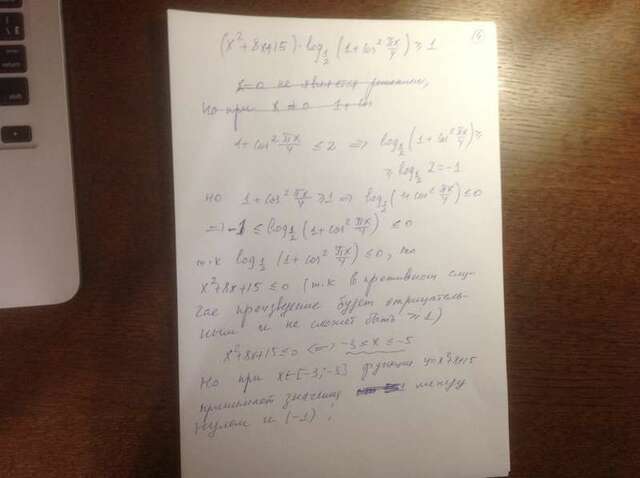 (x²+8x+15)·log_{1/2}(1+cos² πx/4) ≥ 1
x=0 не является решением,
Но при x ≠ 0 1+cos
1+cos² πx/4 ≤ 2 => log_{1/2}(1+cos² πx/4) ≥
≥ log_{1/2} 2 = -1
но 1+cos² πx/4 ≥ 1 => log_{1/2}(1+cos² πx/4) ≤ 0
=> -1 ≤ log_{1/2}(1+cos² πx/4) ≤ 0
т.к log_{1/2}(1+cos² πx/4) ≤ 0, то
x²+8x+15 ≤ 0 (т.к в противном слу-
чае произведение будет отрицатель-
ным и не сможет быть ≥ 1)
x²+8x+15 ≤ 0 <=> -3 ≤ x ≤ -5
Но при x∈[-3;-5] функция y=x²+8x+15
принимает значение между
нулем и (-1)